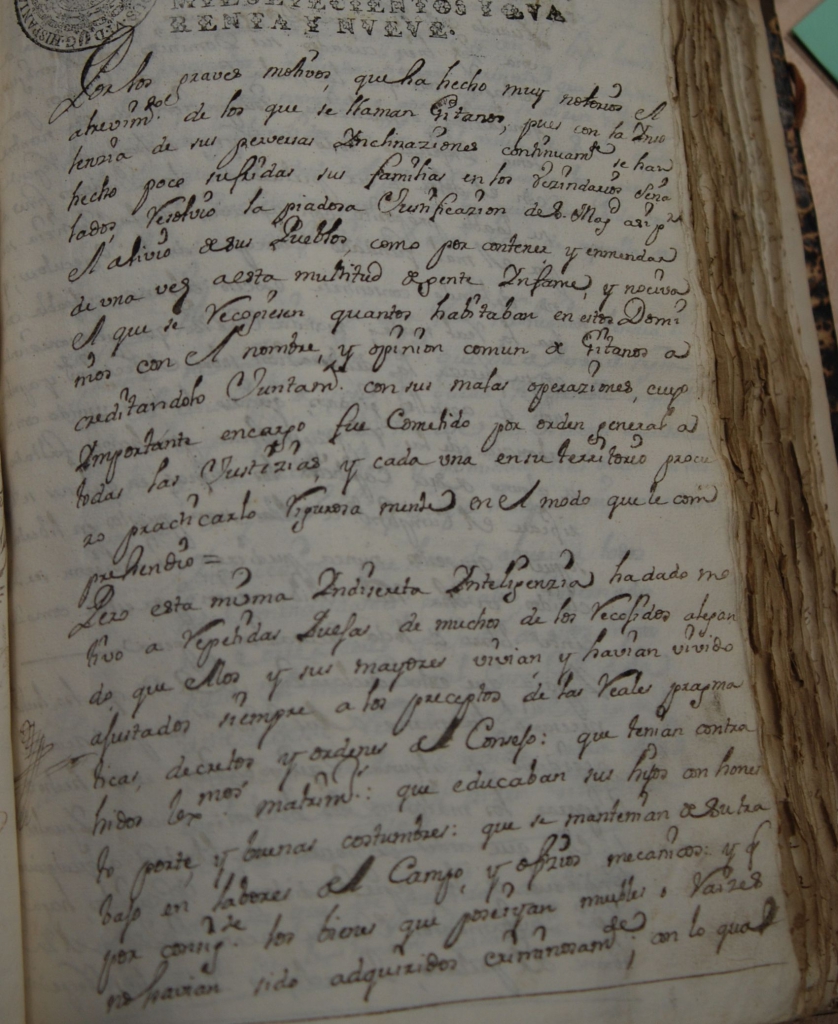 MILSETECIENTOS Y QVA
RENTA Y NVEVE.
Por los graves motivos, que ha hecho muy notorios el
atrevim.to de los que se llaman Gitanos, pues con la Inso
lenzia de sus perversas Inclinaziones continuam.te se han
hecho poco sufridas sus familias en los Vezindarios Seña
lados, Resolvio la piadosa Justificazion de S. Mag. asi p.ra
el alivio de sus Pueblos, como por contener y enmendar
de una vez a esta multitud de gente Infame, y nociva
el que se Recogiesen quantos habitaban en estos Domi
nios con el nombre, y opinion comun de Gitanos a
creditandolo Juntam.te con sus malas operaziones, cuyo
Importante encargo fue Cometido por orden general a
todas las Justizias, y cada una en su territorio procu
ro practicarlo Rigurosa mente en el modo que le com
prehendio =
Pero esta misma Indiscreta Inteligenzia ha dado mo
tivo a Repetidas Quejas de muchos de los Recogidos alegan
do, que ellos y sus mayores vivian, y havian vivido
ajustados siempre a los preceptos de las Reales pragma
ticas, decretos y ordenes del Consejo: que tenian contra
hidos lex.mos matrim.s: que educaban sus hijos con hones
to porte, y buenas costumbres: que se mantenian de su tra
bajo en labores del Campo, y ofizios mecanicos: y q
por consig.te los bienes que poseyan muebles o Raizes
no havian sido adquiridos criminosam.te; con lo qual